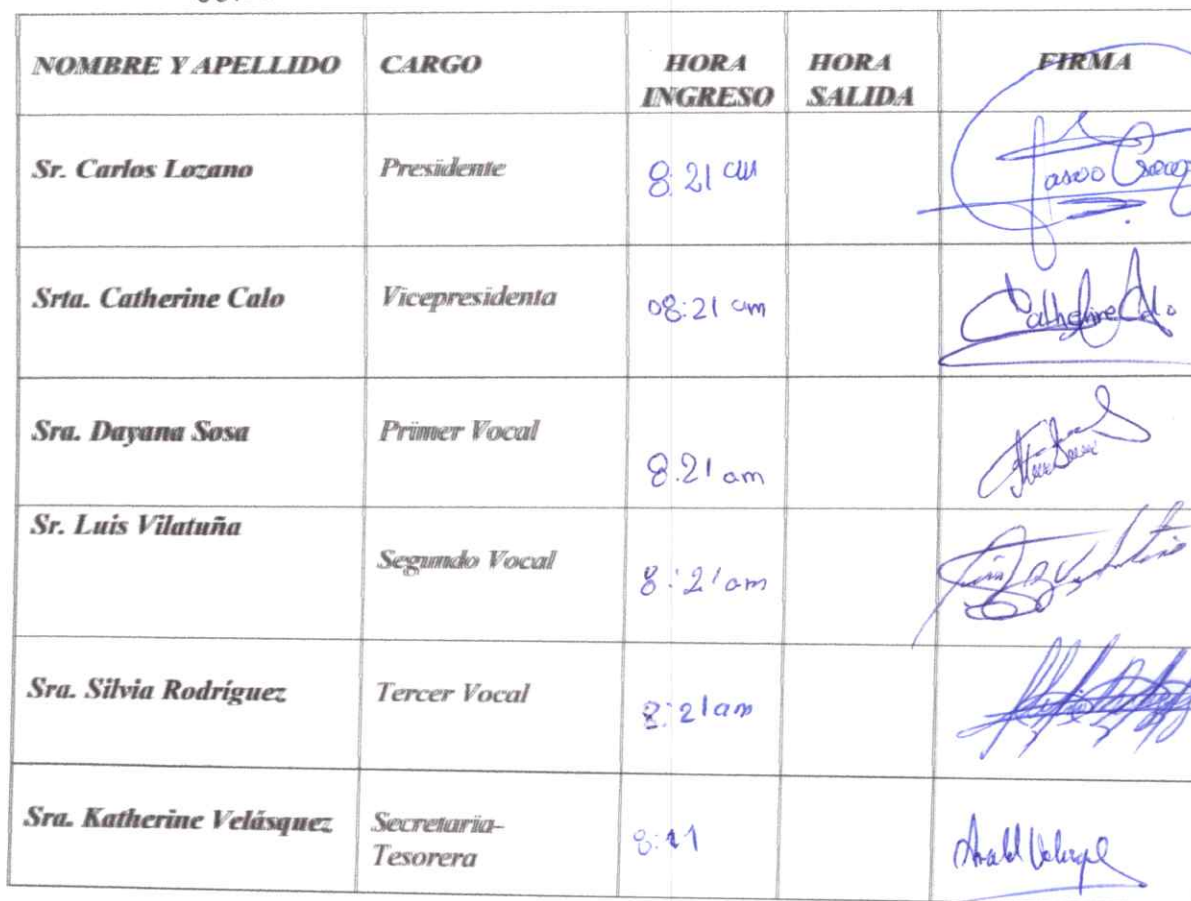 NOMBRE Y APELLIDO CARGO HORA INGRESO HORA SALIDA FIRMA
Sr. Carlos Lozano Presidente 8:21 am
Srta. Catherine Calo Vicepresidenta 08:21 am Catherine Calo
Sra. Dayana Sosa Primer Vocal 8:21 am
Sr. Luis Vilatuña Segundo Vocal 8:21 am
Sra. Silvia Rodríguez Tercer Vocal 8:21am
Sra. Katherine Velásquez Secretaria-
Tesorera